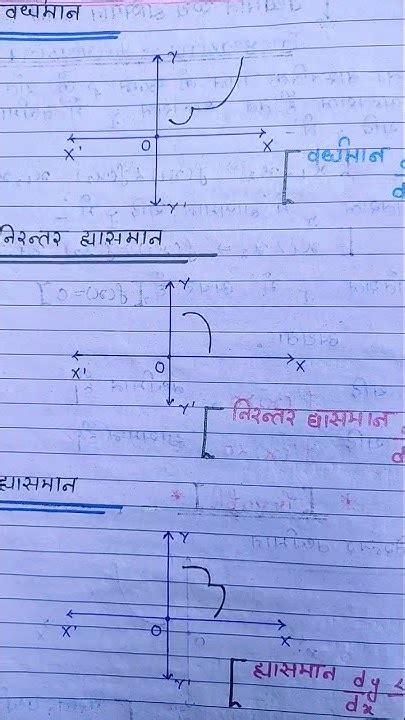 वर्धमान
Y
X' O X
Y'
वर्धमान
निरन्तर ह्यासमान
Y
[f(x)=0]
X' O X
Y'
निरन्तर ह्यासमान
ह्यासमान
Y
X' O X
Y'
ह्यासमान dy/dx <